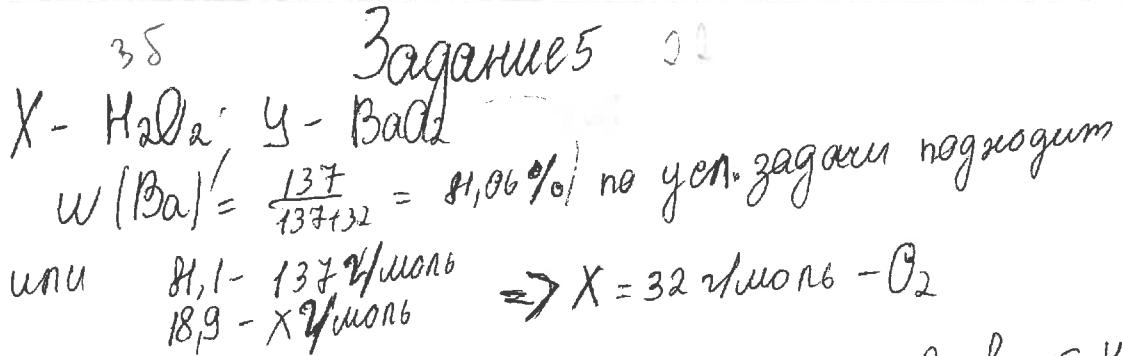 3 б Задание 5
X - H₂O₂; Y - BaO₂
W(Ba) = 137/137+32 = 81,06%) по усл. задачи подходит
или 81,1 - 137 г/моль
18,9 - X г/моль => X = 32 г/моль - O₂